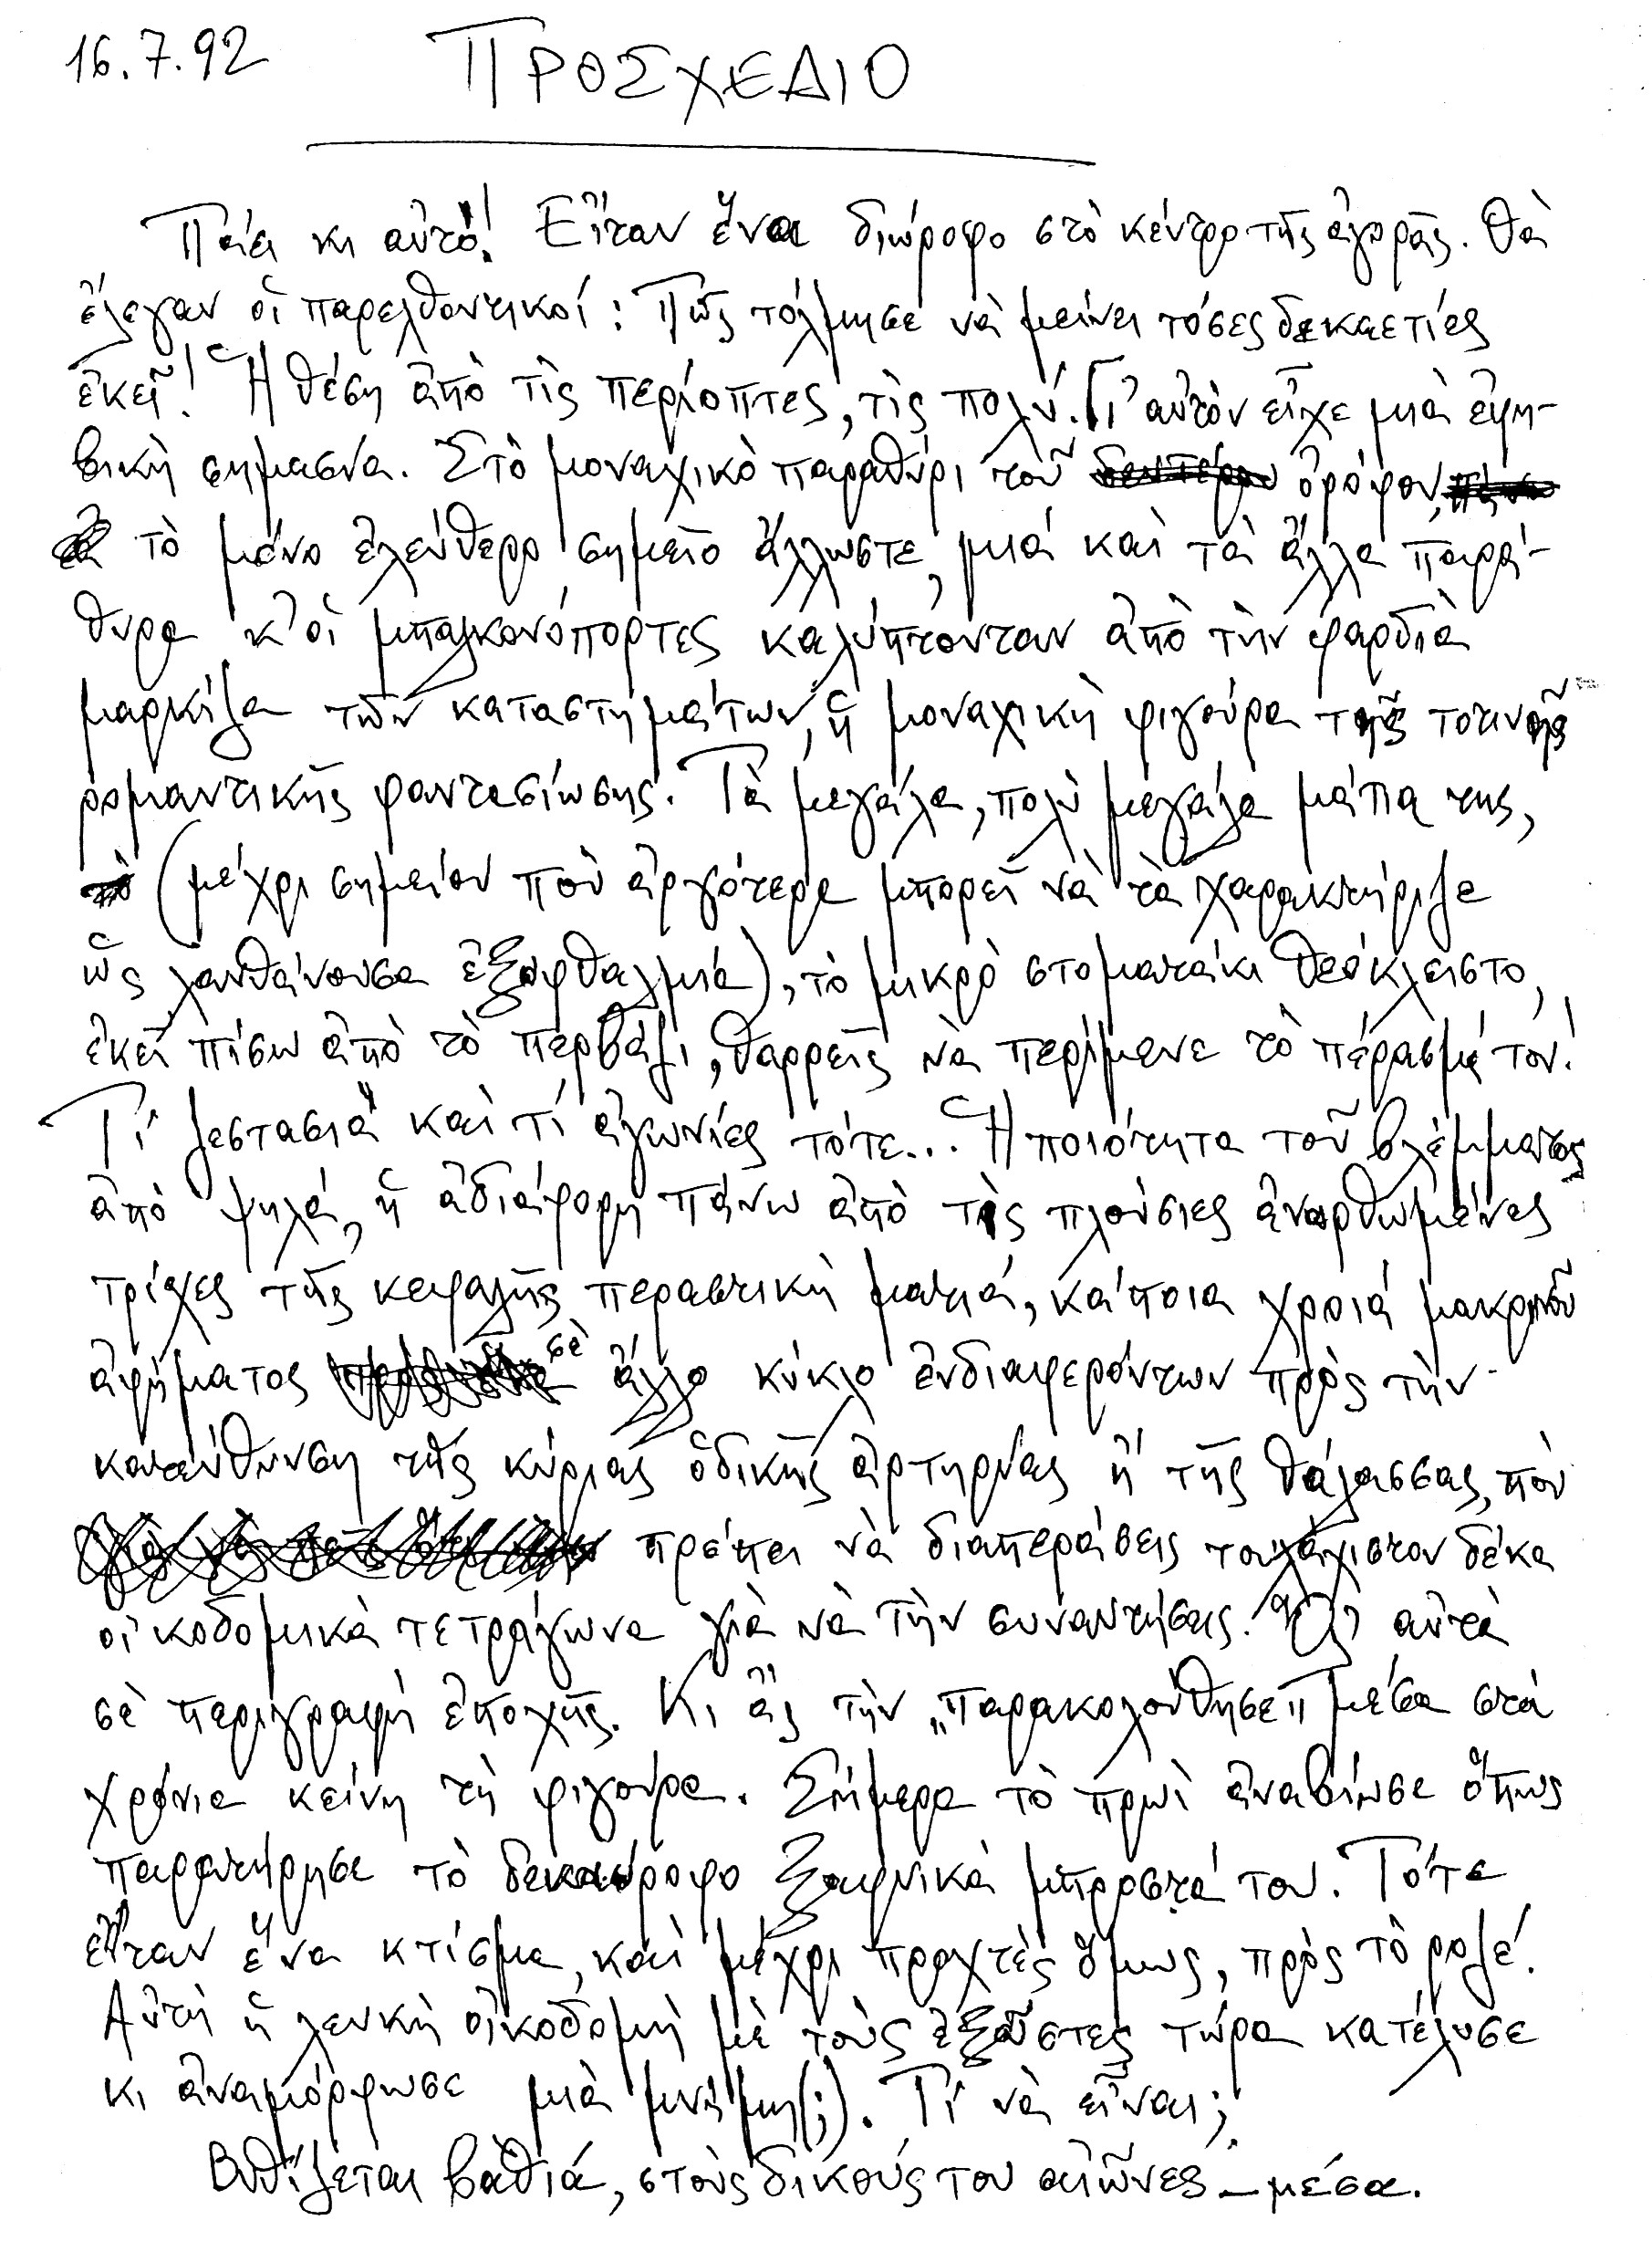 16.7.92 ΠΡΟΣΧΕΔΙΟ
Πάει κι αὐτό! Εἶταν ἕνα διώροφο στὸ κέντρο τῆς ἀγορᾶς. Θὰ
ἔλεγαν οἱ παρελθοντικοί: Πῶς τόλμησε νὰ μείνει τόσες δεκαετίες
ἐκεῖ! Ἡ θέση ἀπὸ τὶς περίοπτες, τὶς πολύ. Γι' αὐτὸν εἶχε μιὰ ἐφη-
βικὴ σημασία. Στὸ μοναχικὸ παραθύρι τοῦ ὀρόφου,
τὸ μόνο ἐλεύθερο σημεῖο ἄλλωστε, μιά καὶ τὰ ἄλλα παρά-
θυρα κ' οἱ μπαλκονόπορτες καλύπτονταν ἀπὸ τὴν φαρδιὰ
μαρκίζα τῶν καταστημάτων, ἡ μοναχικὴ φιγούρα τῆς τοτινῆς
ρομαντικῆς φαντασίωσης. Τὰ μεγάλα, πολὺ μεγάλα μάτια της,
(μέχρι σημείου ποὺ ἀργότερα μπορεῖ νὰ τὰ χαρακτήριζε
ὡς λανθάνουσα ἐξοφθαλμία), τὸ μικρὸ στοματάκι θεόκλειστο,
ἐκεῖ πίσω ἀπὸ τὸ περβάζι, θαρρεῖς νὰ περίμενε τὸ πέρασμά του!
Τί ζεστασιὰ καὶ τί ἀγωνίες τότε... Ἡ ποιότητα τοῦ βλέμματος
ἀπὸ ψηλά, ἡ ἀδιάφορη πάνω ἀπὸ τὶς πλούσιες ἀνορθωμένες
τρίχες τῆς κεφαλῆς περαστικὴ ματιά, κάποια χροιά μακρινοῦ
ἀφήματος σὲ ἄλλο κύκλο ἐνδιαφερόντων πρὸς τὴν
κατεύθυνση τῆς κύριας ὁδικῆς ἀρτηρίας ἢ τῆς θάλασσας, ποὺ
πρέπει νὰ διαπεράσεις τουλάχιστον δέκα
οἰκοδομικὰ τετράγωνα γιὰ νὰ τὴν συναντήσεις. Ὅλ' αὐτὰ
σὲ περιγραφὴ ἐποχῆς. Κι ἂς τὴν „παρακολούθησε" μέσα στὰ
χρόνια κείνη τὴ φιγούρα. Σήμερα τὸ πρωὶ ἀναβίωσε ὅπως
παρατήρησε τὸ δεκαόροφο ξαφνικὰ μπροστά του. Τότε
εἶταν ἕνα κτίσμα, καὶ μέχρι προχτὲς ὅμως, πρὸς τὸ ροζέ.
Αὐτὴ ἡ λευκὴ οἰκοδομὴ μὲ τοὺς ἐξῶστες τώρα κατέλυσε
κι ἀναμόρφωσε μιὰ μνήμη(;). Τί νὰ εἶναι;
Βυθίζεται βαθιά, στοὺς δικούς του αἰῶνες – μέσα.